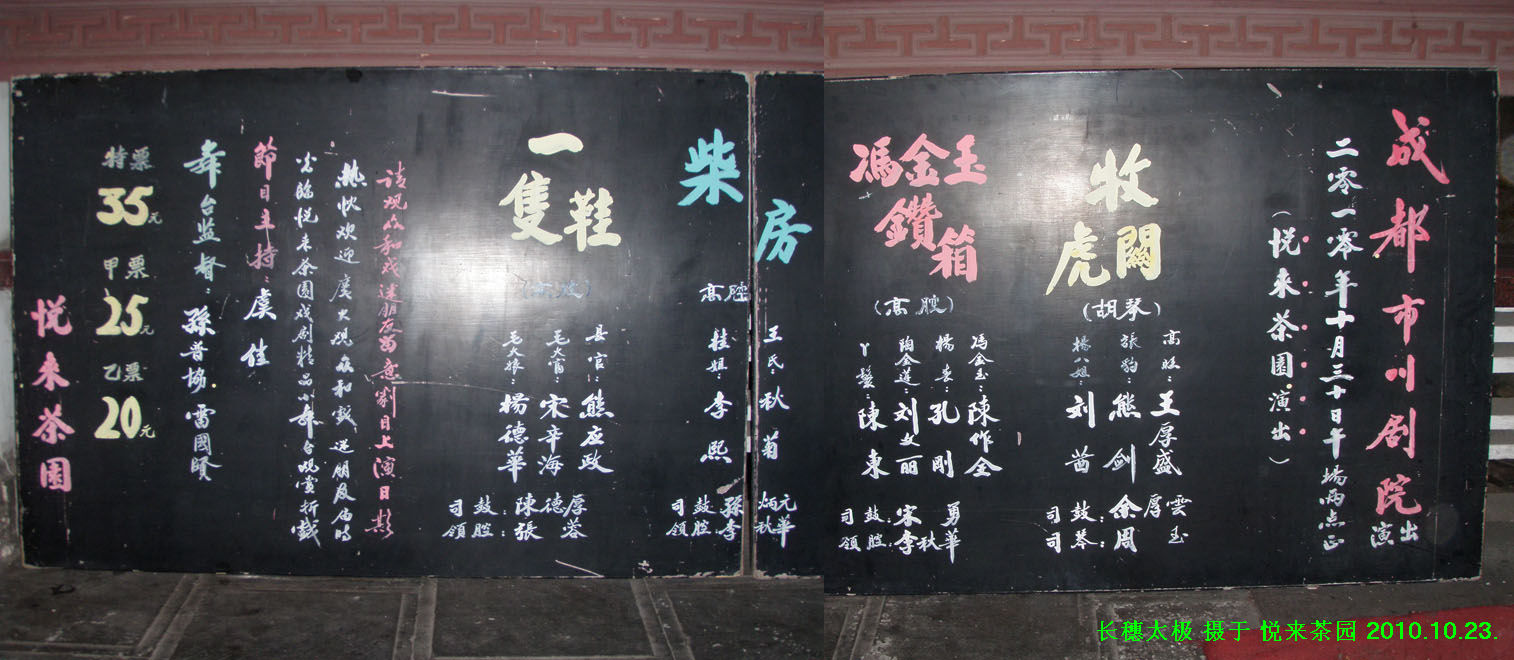 成都市川剧院演出
二零一零年十月三十日午场两点正
（悦来茶園演出）
牧虎關
（胡琴）
高旺：王厚盛
張豹：熊剑
楊八姐：刘茜
司鼓：余厚雲
司琴：周玉
馮金玉鑽箱
（高腔）
冯金玉：陳作全
楊春：孔剛
陶金莲：刘文丽
丫鬟：陳東
司鼓：宋勇
領腔：李秋華
柴房
高腔
王氏秋菊
桂姐：李熙
司鼓：孫炳元
領腔：李秋華
一隻鞋
（高腔）
县官：熊应政
毛大富：宋辛海
毛大娘：楊德華
司鼓：陳德厚
領腔：張蓉
请观众和戏迷朋友留意剧目上演日期
热忱欢迎廣大观众和戲迷朋友届時
光臨悦来茶園戏剧精品小舞台观赏折戲
節目主持：虞佳
舞台监督：孫普協 雷國賢
特票
35元
甲票
25元
乙票
20元
悦来茶園
长穗太极 摄于 悦来茶园 2010.10.23.